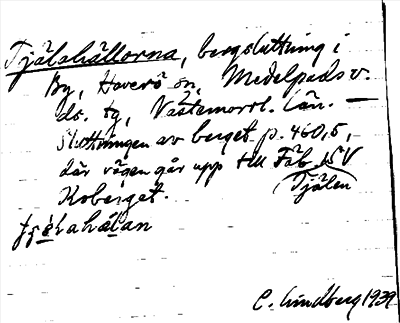 Tjälahällorna, bergsluttning i
By, Haverö sn, Medelpads v.
ds. tg, Västernorrl. län. —
Sluttningen av berget p. 460,5,
där vägen går upp till Fäb. SV
Koberget. (Tjälen
tjèlahälan
C. Lindberg 1939